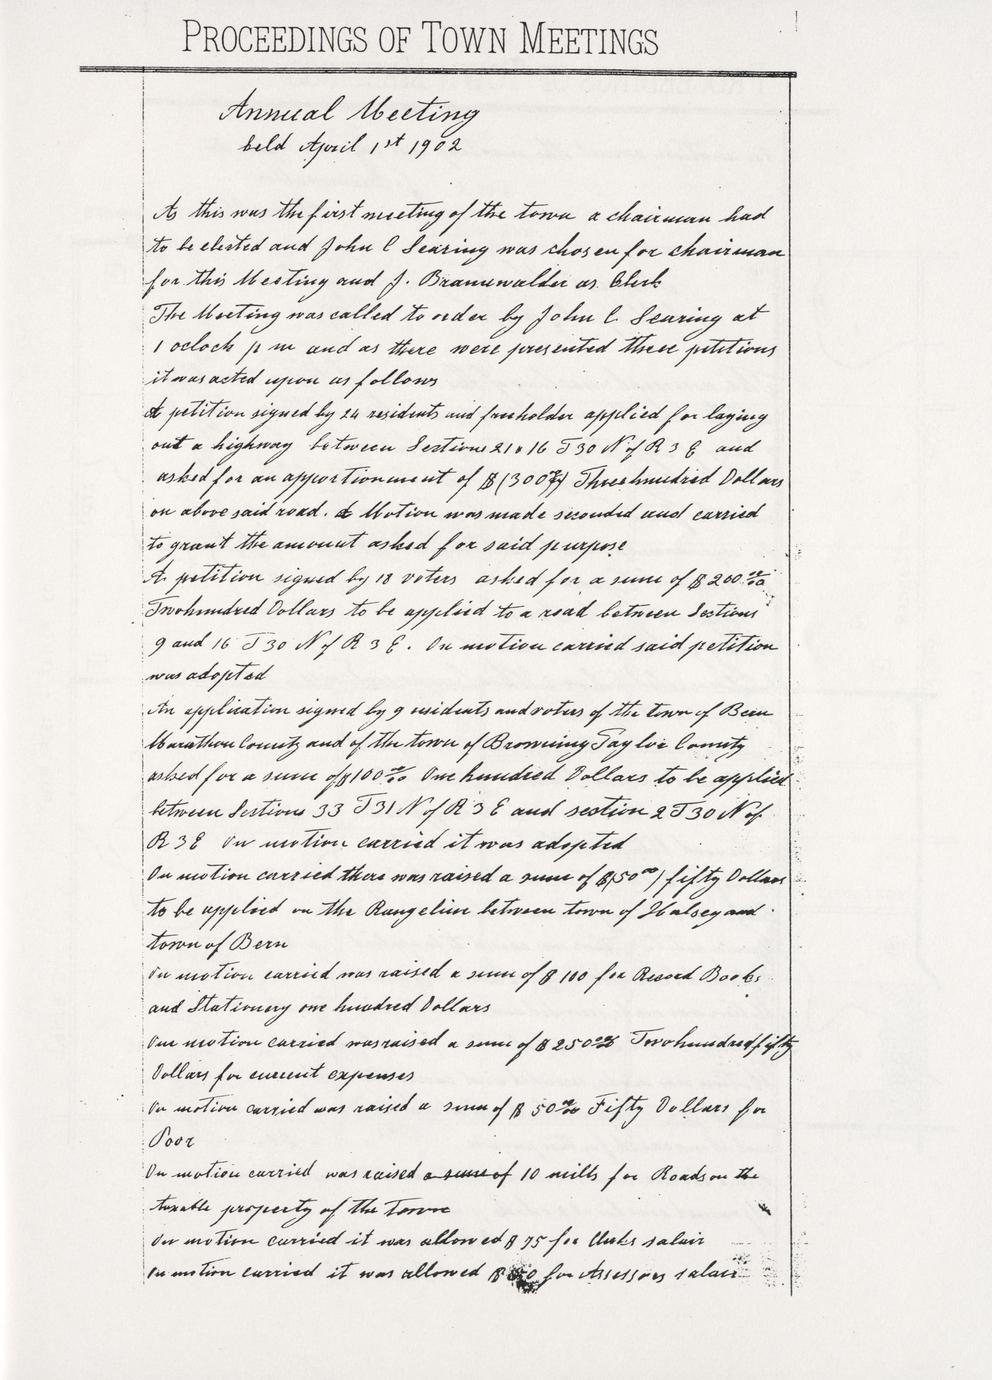 PROCEEDINGS OF TOWN MEETINGS
Annual Meeting
held April 1st 1902
As this was the first meeting of the town a chairman had
to be elected and John C Searing was chosen for chairman
for this Meeting and J. Braunwalder as Clerk
The Meeting was called to order by John C. Searing at
1 oclock p m and as there were presented three petitions
it was acted upon as follows
A petition signed by 24 residents and freeholder applied for laying
out a highway between Sections 21 & 16 T 30 N of R 3 E and
asked for an apportionment of $(300 00/) Threehundred Dollars
on above said road. A Motion was made seconded and carried
to grant the amount asked for said purpose
A petition signed by 18 voters asked for a sum of $200 00/00
Twohundred Dollars to be applied to a road between Sections
9 and 16 T 30 N of R 3 E. On motion carried said petition
was adopted
An application signed by 9 residents and voters of the town of Bern
Marathon County and of the town of Browning Taylor County
asked for a sum of $100 00/00 One hundred Dollars to be applied
between Sections 33 T 31 N of R 3 E and section 2 T 30 N of
R 3 E On motion carried it was adopted
On motion carried there was raised a sum of $(50 00) fifty Dollars
to be applied on the Rangeline between town of Halsey and
town of Bern
On motion carried was raised a sum of $ 100 for Record Books
and Stationery one hundred Dollars
One motion carried was raised a sum of $ 250 00/00 Twohundredfifty
Dollars for current expenses
On motion carried was raised a sum of $ 50 00/00 Fifty Dollars for
Poor
On motion carried was raised a sum of 10 mills for Roads on the
taxable property of the Town
On motion carried it was allowed $ 75 for Clerks salair
On motion carried it was allowed $ for Assessors salair